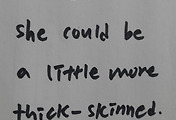 she could be
a little more
thick-skinned.